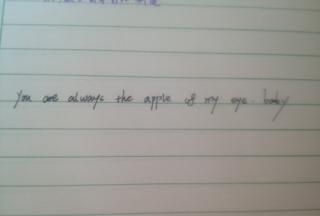 you are always the apple of my eye. baby